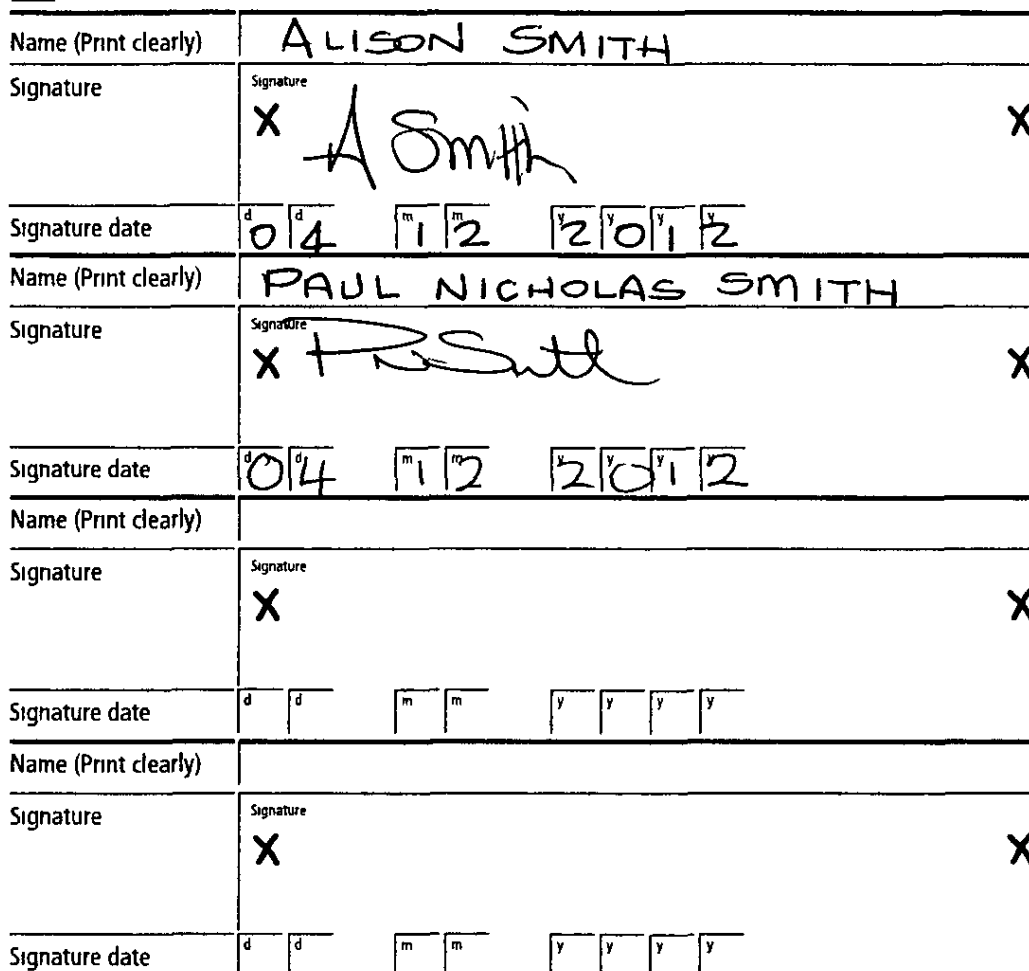 Name (Print clearly) ALISON SMITH
Signature
Signature
X A Smith X
Signature date d d m m y y y y
04 12 2012
Name (Print clearly) PAUL NICHOLAS SMITH
Signature
Signature
X P N Smith X
Signature date d d m m y y y y
04 12 2012
Name (Print clearly)
Signature
Signature
X X
Signature date d d m m y y y y
Name (Print clearly)
Signature
Signature
X X
Signature date d d m m y y y y